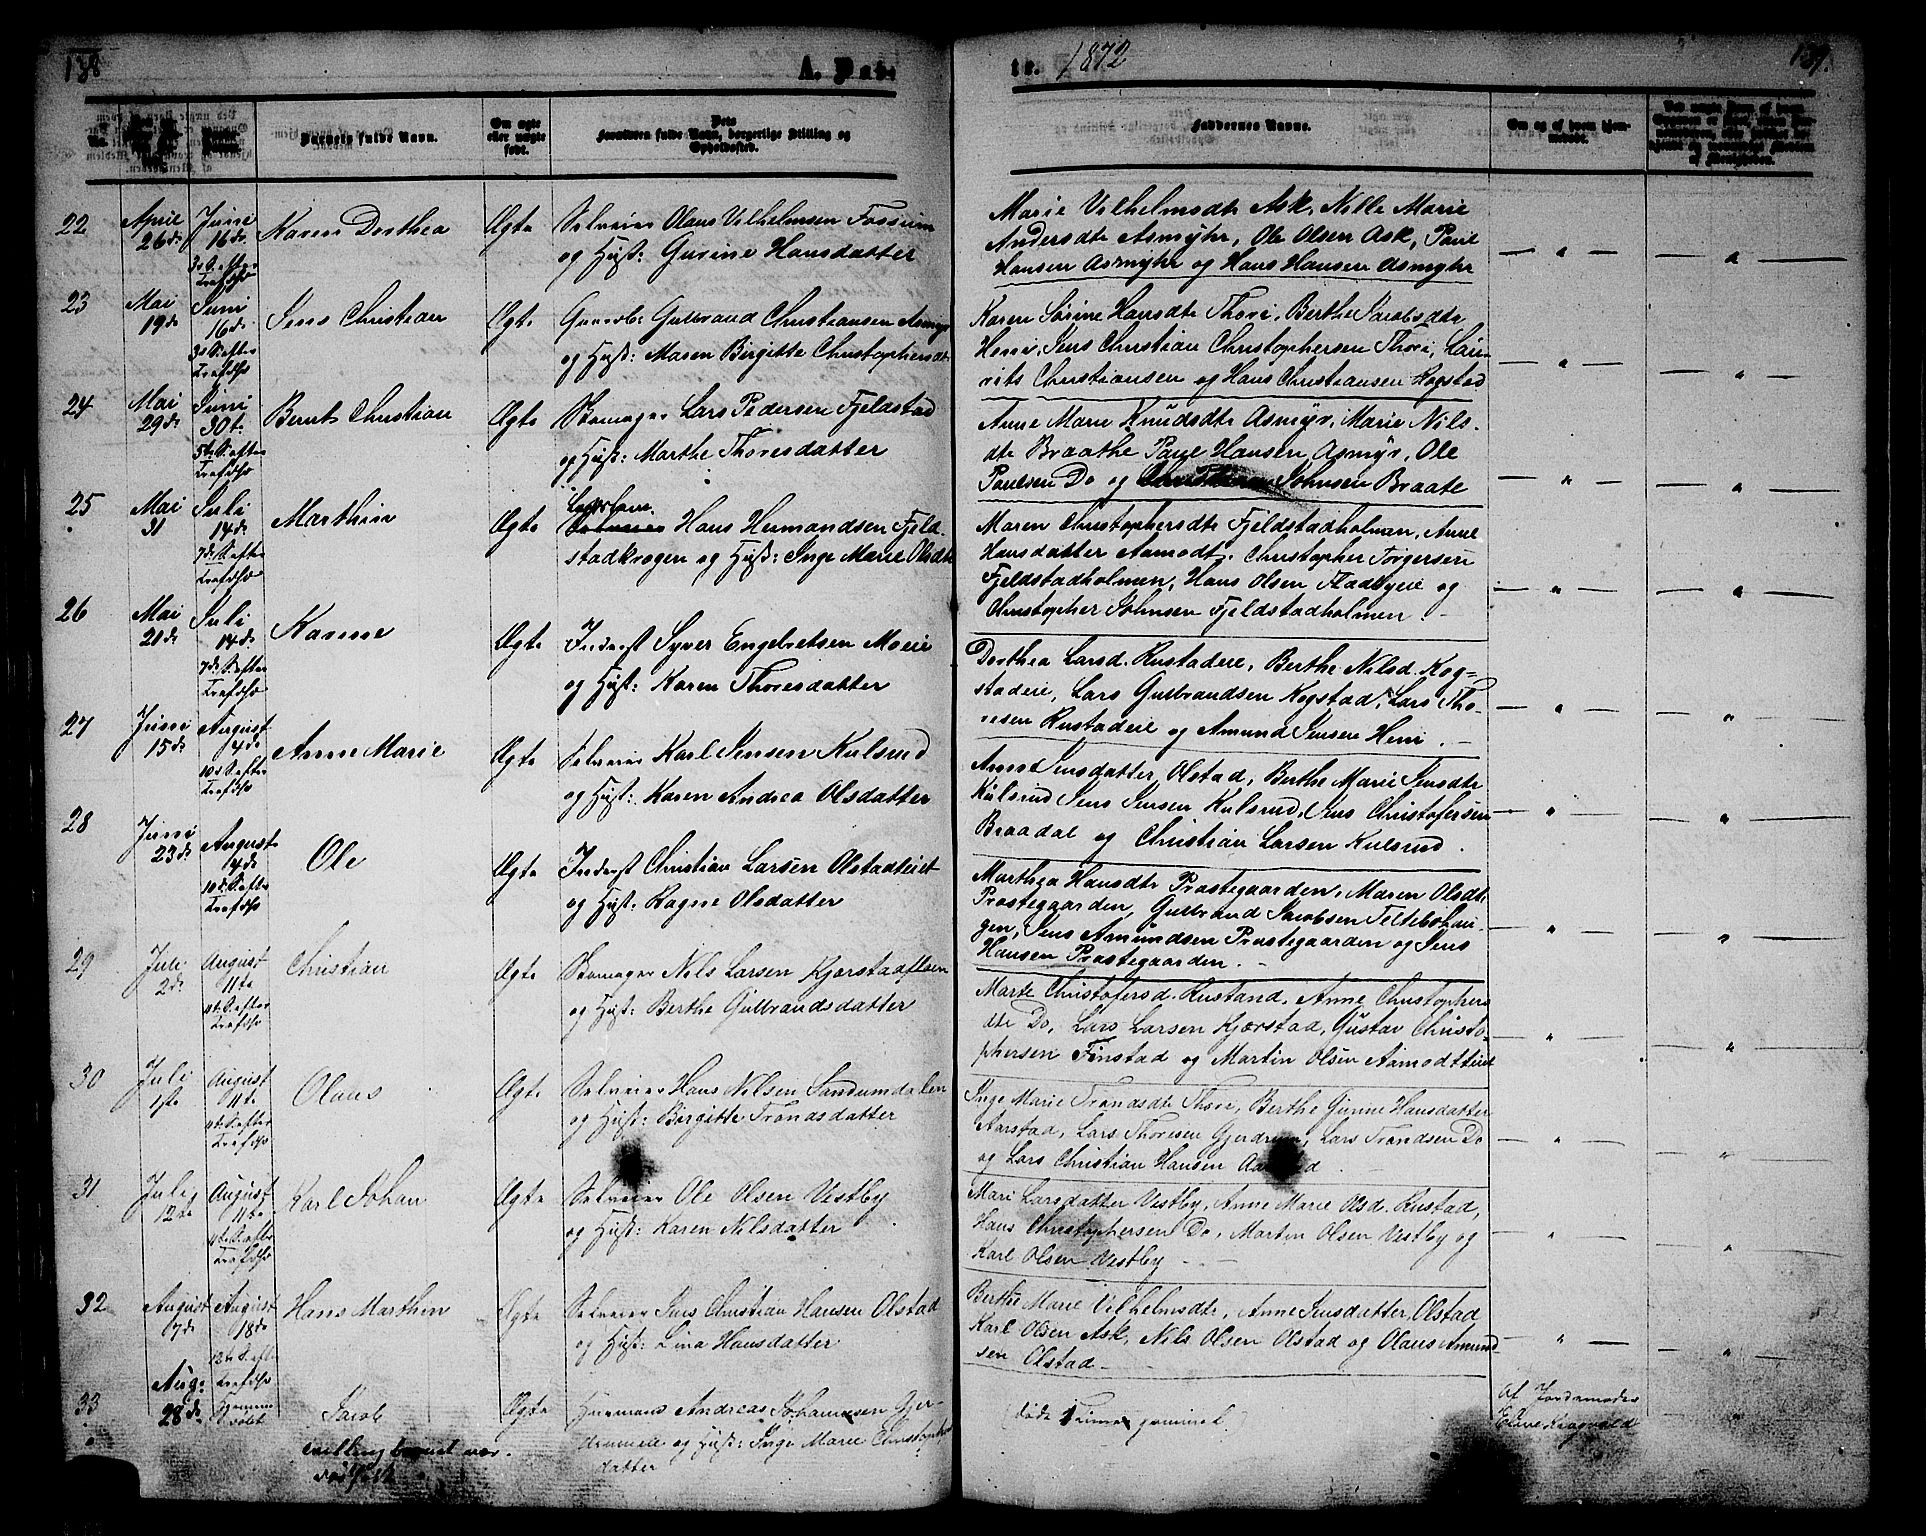 138
A. Døbte
tr. 1872
139.
Barnets fulde Navn.
Om ægte
eller uægte
født.
Dets
Forældres fulde Navn, borgerlige Stilling og
Opholdssted.
Faddernes Navne.
Om og af hvem hjem-
medøbt.
22
April
26de
Juni
16de
3de S. efter
Trefdhs
Karen Dorthea
Ægte
Selveier Olaus Vilhelmsen Fossum
og Hust: Gurine Hansdatter
Marie Vilhelmsdtr Ask, Nille Marie
Andersdtr Asmyhr, Ole Olsen Ask, Paul
Hansen Asmyhr og Hans Hansen Asmyhr
23
Mai
19de
Juni
16de
3de S. efter
Trefdhs
Jens Christian
Ægte
Gaardb: Gulbrand Christiansen Asmyr
og Hust: Maren Birgitte Christophersdtr
Karen Sørine Hansdtr Thori, Berthe Jacobsdtr
Henni, Jens Christian Christophersen Thori, Lau-
rits Christiansen og Hans Christiansen Kogstad
24
Mai
29de
Juni
30te
5te S. efter
Trefdhs
Bernt Christian
Ægte
Skomager Lars Pedersen Fjeldstad
og Hust: Marthe Thoresdatter
Anne Marie Knudsdtr Asmyr, Marie Nils-
dtr Braathe Paul Hansen Asmyr, Ole
Paulsen Do og Johnsen Braate
25
Mai
31
Juli
14de
7de S. efter
Trefdhs
Marthin
Ægte
Selveier Hans Hermandsen Fjeld-
stadkrogen og Hust: Inge Marie Olsdtr
Maren Christophersdtr Fjeldstadholman, Anne
Hansdatter Aamodt, Christopher Torgersen
Fjeldstadholmen, Hans Olsen Fladbyeie og
Christopher Johnsen Fjeldstadholmen.
26
Mai
21de
Juli
14de
7de S. efter
Trefdhs
Karine
Ægte
Inderst Syver Engebretsen Moeie
og Hust: Karen Thoresdatter
Dorthea Larsd. Rustadeie, Berthe Nilsd. Kog-
stadeie, Lars Gulbrandsen Kogstad, Lars Tho-
resen Rustadeie og Amund Jensen Henni.
27
Juni
15de
August
4de
10de S. efter
Trefdhs
Anne Marie
Ægte
Selveier Karl Jensen Kulsrud
og Hust: Karen Andrea Olsdatter
Anne Jensdatter Olstad, Berthe Marie Jensdtr
Kulsrud Jens Jensen Kulsrud, Jens Christofersen
Braadal og Christian Larsen Kulsrud.
28
Juni
23de
August
4de
10de S. efter
Trefdhs
Ole
Ægte
Inderst Christian Larsen Olstadeiet
og Hust: Ragne Olsdatter
Marthea Hansdtr Præstegaarden, Maren Olsdtr
Præstegaarden, Gulbrand Jacobsen Teltebohau-
gen, Jens Amundsen Præstegaarden og Jens
Hansen Præstegaarden.
29
Juli
2de
August
11te
11te S. efter
Trefdhs
Christian
Ægte
Skomager Nils Larsen Kjærstadflaen
og Hust: Berthe Gulbrandsdatter
Marte Christofersd. Rustand, Anne Christophers
dtr Do, Lars Larsen Kjærstad, Gustav Christo-
phersen Finstad og Martin Olsen Aamodteiet
30
Juli
1ste
August
11te
11te S. efter
Trefdhs
Olaus
Ægte
Selveier Hans Nilsen Sandumdalen
og Hust: Birgitte Trondsdatter
Inge Marie Trondsdtr Thori, Berthe Gurine Hansdatter
Aarstad, Lars Thoresen Gjerdrum, Lars Trondsen Do
og Lars Christian Hansen
31
Juli
12te
August
11te
11te S. efter
Trefdhs
Karl Johan
Ægte
Selveier Ole Olsen Vestby
og Hust: Karen Nilsdatter
Mari Larsdatter Vestby, Anne Marie Olsd. Rustad,
Hans Christophersen Do, Martin Olsen Vestby og
Karl Olsen Vestby
32
August
7de
August
18de
12te S. eft.
Trefdhs
Hans Marthin
Ægte
Selveier Jens Christian Hansen Olstad
og Hust: Lina Hansdatter
Berthe Marie Vilhelmsdtr, Anne Jensdatter Olstad
Karl Olsen Ask, Nils Olsen Olstad og Olaus Amund-
sen Olstad
33
Aug:
28de
Hjemme
døbt
Jacob
tvilling barnet var
dødfødt
Ægte
Huusmand Andreas Johannesen Gjer-
drumeie og Hust: Inge Marie Christoph
datter
døde
Af Jordemoder
Eline Kragvold